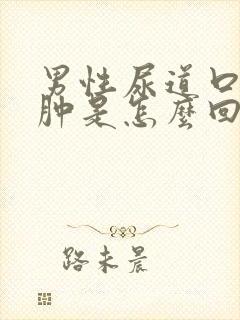 男性尿道口
肿是怎麽回
路未晨